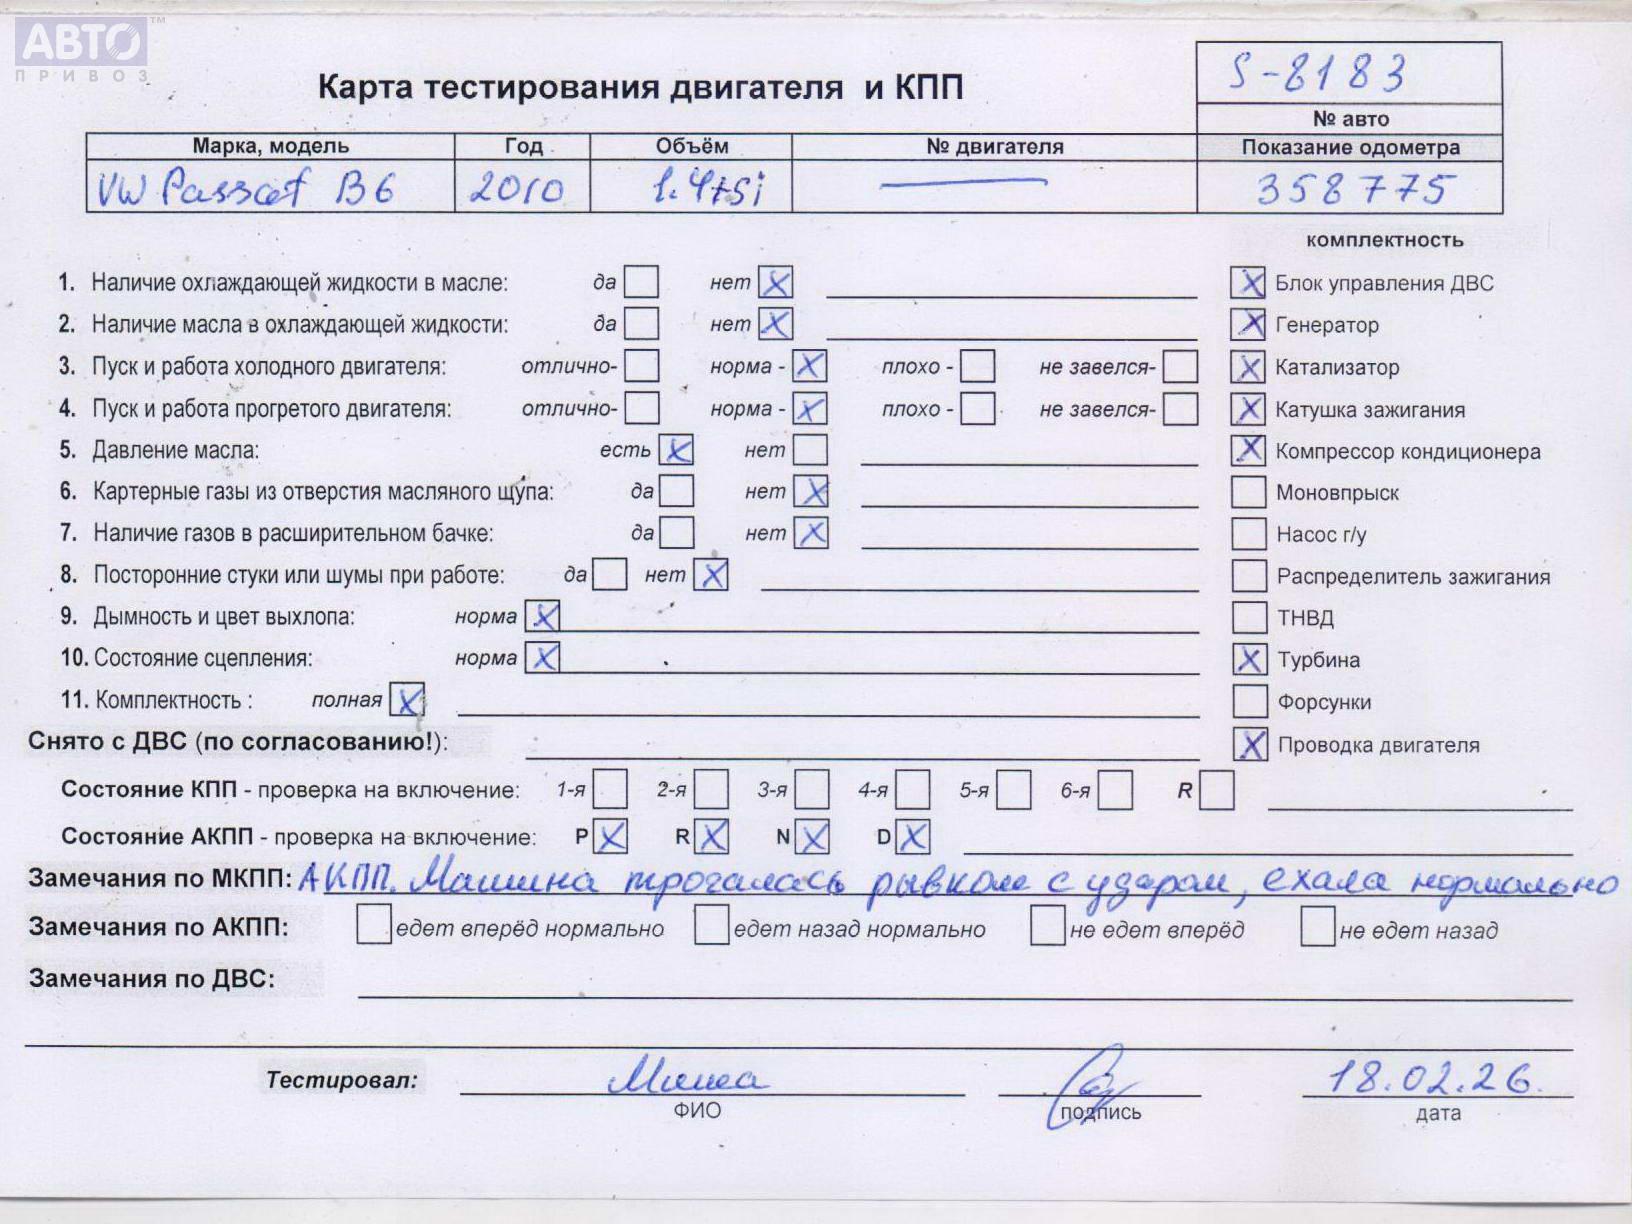 АВТО™
ПРИВОЗ
S-8183
Карта тестирования двигателя и КПП
№ авто
Марка, модель Год Объём № двигателя Показание одометра
VW Passat B6 2010 1.4tsi — 358775
комплектность
1. Наличие охлаждающей жидкости в масле: да нет X X Блок управления ДВС
2. Наличие масла в охлаждающей жидкости: да нет X X Генератор
3. Пуск и работа холодного двигателя: отлично- норма - X плохо - не завелся- X Катализатор
4. Пуск и работа прогретого двигателя: отлично- норма - X плохо - не завелся- X Катушка зажигания
5. Давление масла: есть X нет X Компрессор кондиционера
6. Картерные газы из отверстия масляного щупа: да нет X Моновпрыск
7. Наличие газов в расширительном бачке: да нет X Насос г/у
8. Посторонние стуки или шумы при работе: да нет X Распределитель зажигания
9. Дымность и цвет выхлопа: норма X ТНВД
10. Состояние сцепления: норма X X Турбина
11. Комплектность : полная X Форсунки
Снято с ДВС (по согласованию!): X Проводка двигателя
Состояние КПП - проверка на включение: 1-я 2-я 3-я 4-я 5-я 6-я R
Состояние АКПП - проверка на включение: P X R X N X D X
Замечания по МКПП: АКПП. Машина трогалась рывком с ударом, ехала нормально
Замечания по АКПП: едет вперёд нормально едет назад нормально не едет вперёд не едет назад
Замечания по ДВС:
Тестировал: Миша 18.02.26.
ФИО подпись дата